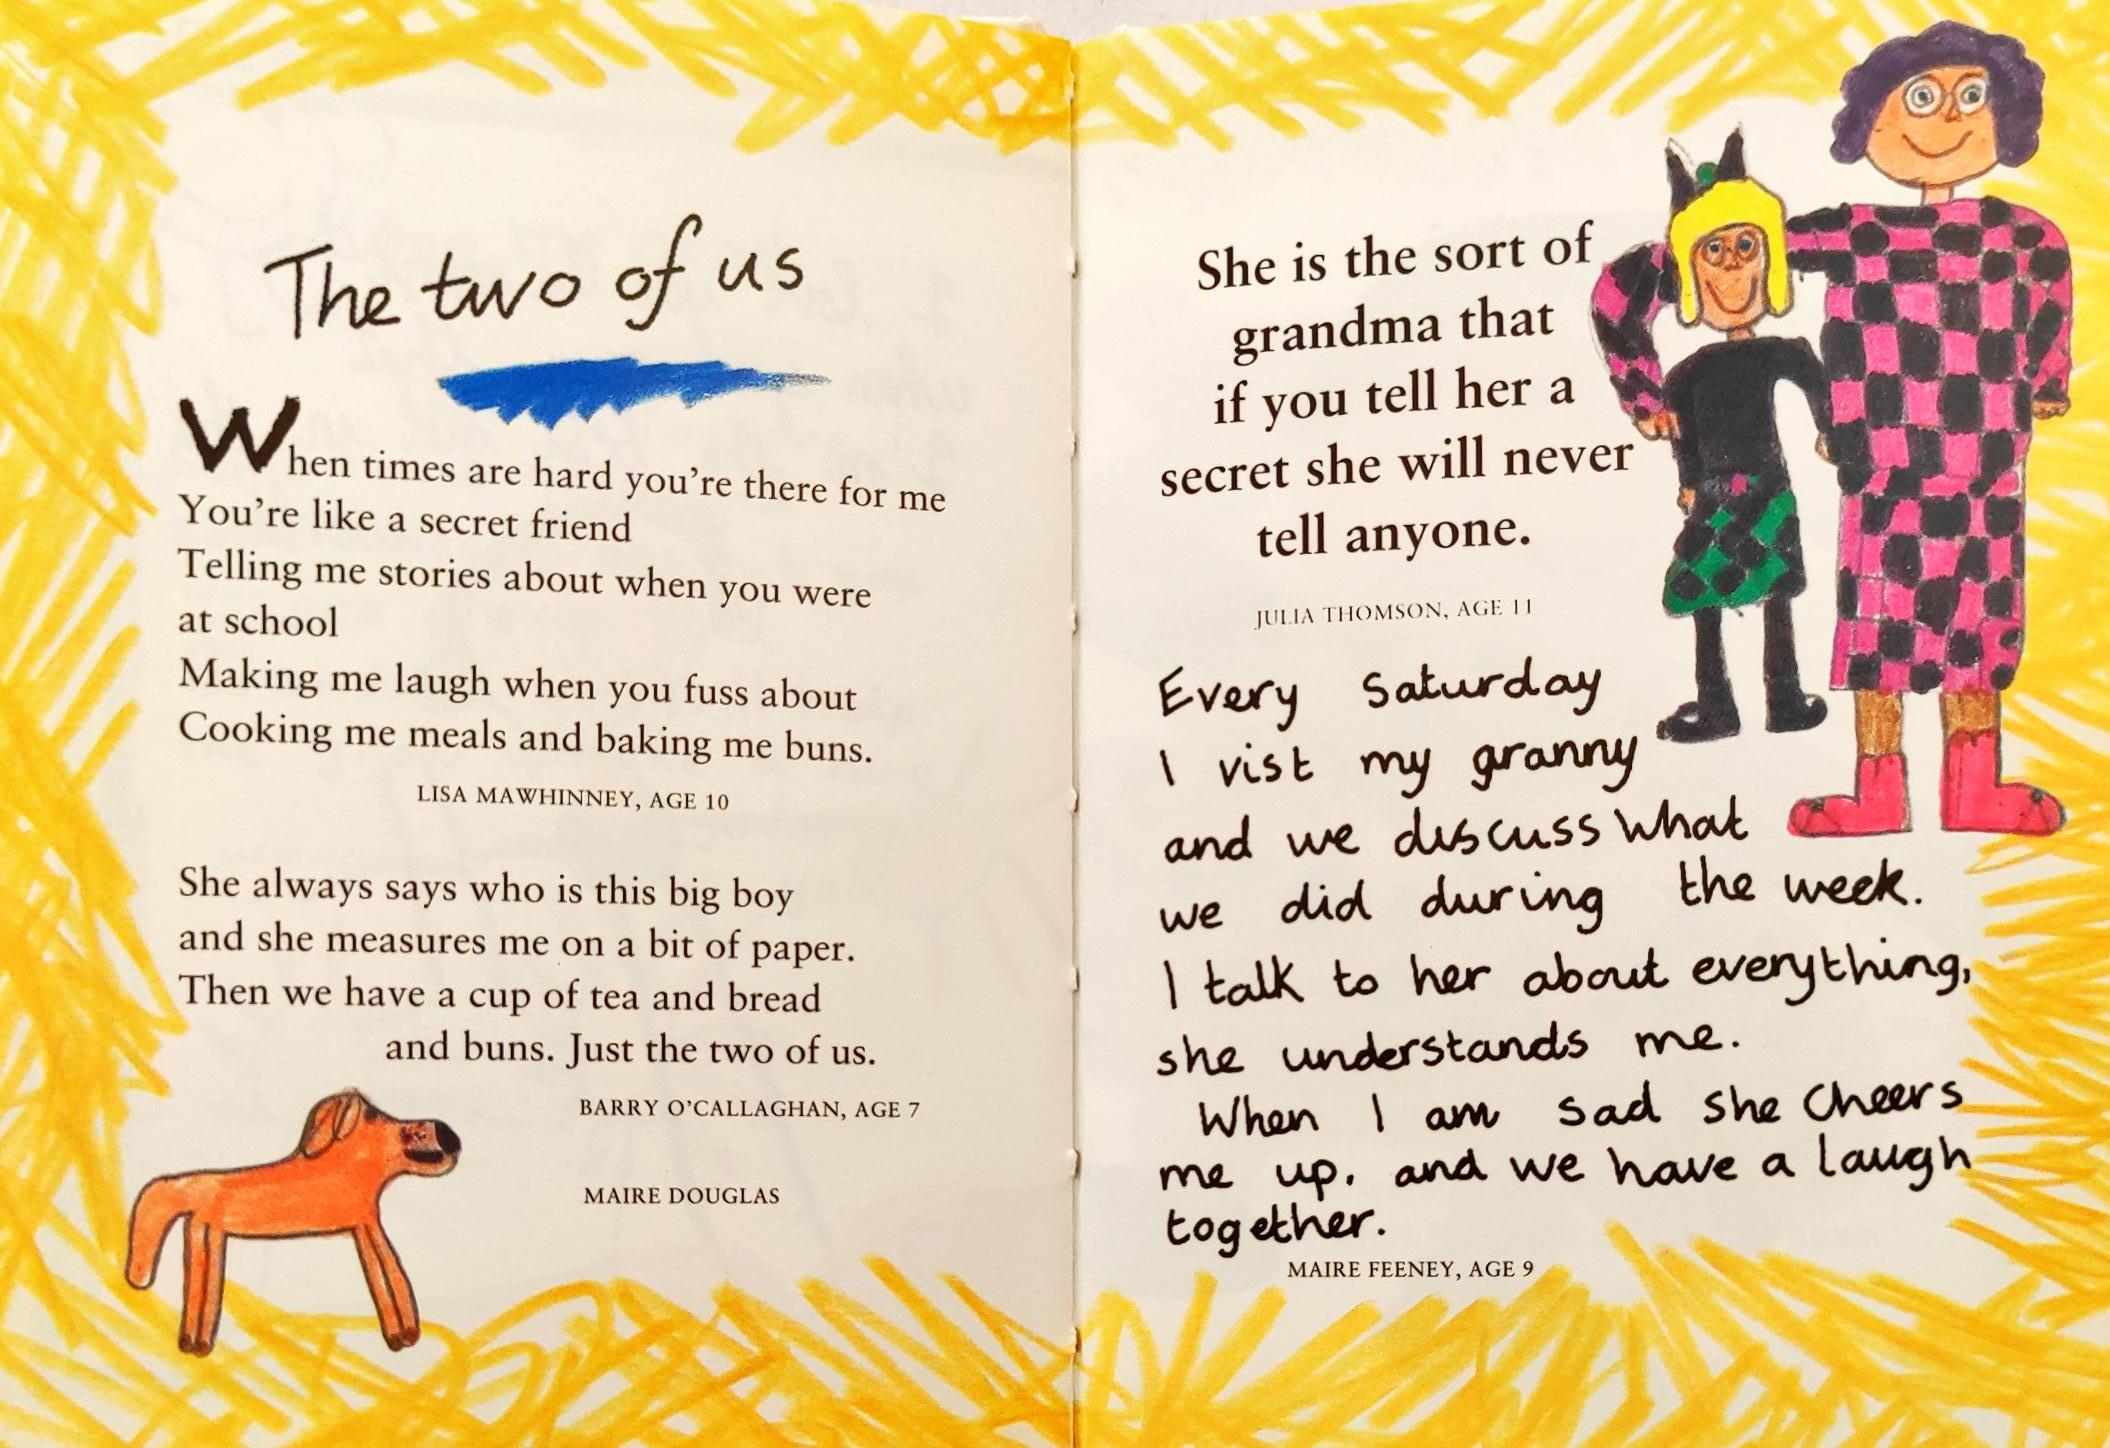 The two of us
When times are hard you're there for me
You're like a secret friend
Telling me stories about when you were
at school
Making me laugh when you fuss about
Cooking me meals and baking me buns.
LISA MAWHINNEY, AGE 10
She always says who is this big boy
and she measures me on a bit of paper.
Then we have a cup of tea and bread
and buns. Just the two of us.
BARRY O'CALLAGHAN, AGE 7
MAIRE DOUGLAS
She is the sort of
grandma that
if you tell her a
secret she will never
tell anyone.
JULIA THOMSON, AGE 11
Every Saturday
I vist my granny
and we discuss what
we did during the week.
I talk to her about everything,
she understands me.
When I am sad she cheers
me up. and we have a laugh
together.
MAIRE FEENEY, AGE 9